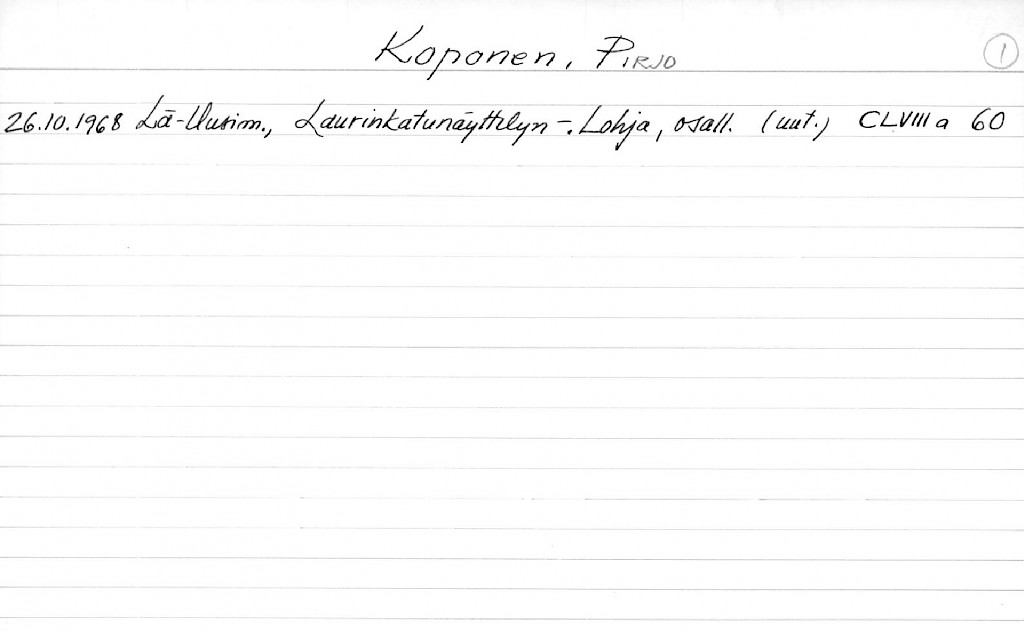 Koponen, PIRJO
1
26.10.1968 Lä-Uusim., Laurinkatunäyttelyn -. Lohja, osall. (uut.) CLVIII a 60